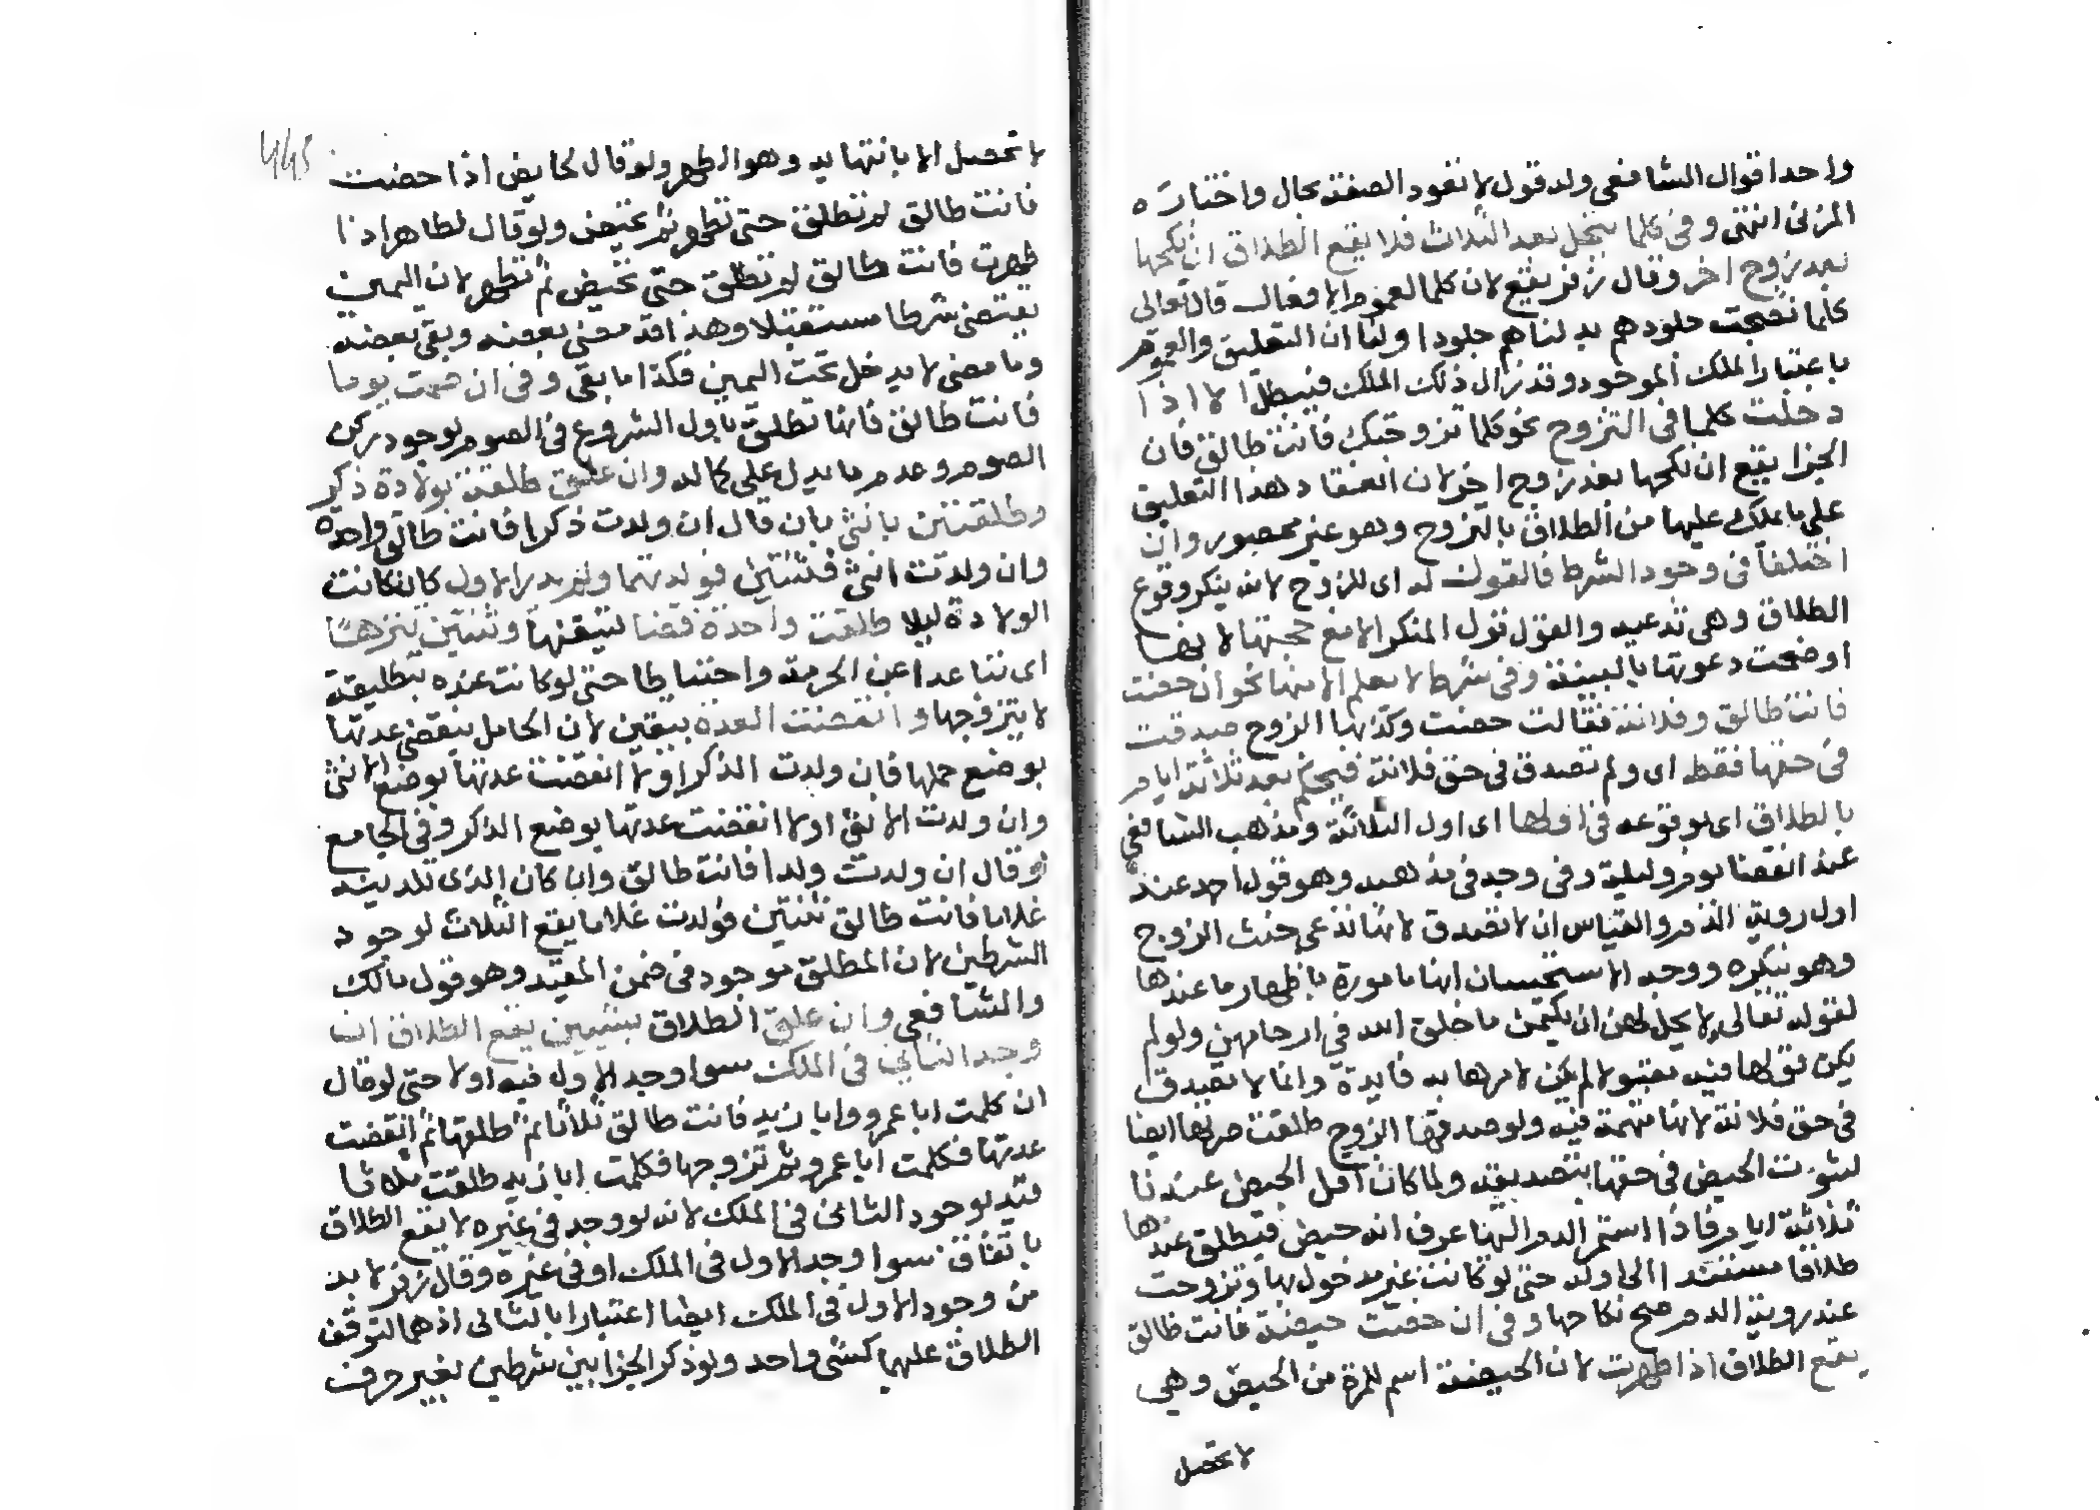 واحد اقوال الشافعي وله قول لا تعود الصفة بحال واختاره
المزني انتهى وفي كلما ينحل بعد الثلاث فلا يقع الطلاق ان نكحها
بعد زوج اخر وقال زفر يقع لان كلما لعموم الافعال قال تعالى
كلما نضجت جلودهم بدلناهم جلودا ولنا ان التعليق والعموم
باعتبار الملك الموجود وقد زال ذلك الملك فيبطل الا اذا
دخلت كلما في التزوج نحو كلما تزوجتك فانت طالق فان
الجزا يقع ان نكحها بعد زوج اخر لان انعقاد هذا التعليق
على ما يملك عليها من الطلاق بالتزوج وهو غير محصور وان
اختلفا في وجود الشرط فالقول له اى للزوج لانه ينكر وقوع
الطلاق وهي تدعيه والقول قول المنكر الا مع حجتها لانها
اوضحت دعوتها بالبينة وفي شرط لا يعلم الا منها نحو ان حضت
فانت طالق وفلانة فقالت حضت وكذبها الزوج صدقت
في حقها فقط اى ولم تصدق في حق فلانة فيحكم بعد ثلاثة ايام
بالطلاق اى بوقوعه في اولها اى اول الثلاثة ومذهب الشافعي
عند انقضا يوم وليلة وفي وجه في مذهبه وهو قول احمد عند
اول روية الدم والقياس ان لا تصدق لانها تدعي حنث الزوج
وهو ينكره ووجه الاستحسان انها مامورة باظهار ما عندها
لقوله تعالى لا يحل لهن ان يكتمن ما خلق الله في ارحامهن ولو لم
يكن قولها فيه معتبرا لم يكن لامرها به فايدة وانما لا تصدق
في حق فلانة لانها متهمة فيه ولو صدقها الزوج طلقت ضرتها ايضا
لثبوت الحيض في حقها بتصديقه ولما كان اقل الحيض عندنا
ثلاثة ايام فاذا استمر الدم اليها عرف انه حيض فيطلق عندها
طلاقا مستندا الى اوله حتى لو كانت غير مدخول بها وتزوجت
عند روية الدم صح نكاحها وفي ان حضت حيضة فانت طالق
يقع الطلاق اذا طهرت لان الحيضة اسم للمرة من الحيض وهي
لا تحصل
٤٤٥
لا تحصل الا بانتهايه وهو الطهر ولو قال لحايض اذا حضت
فانت طالق لم تطلق حتى تطهر ثم تحيض ولو قال لطاهر اذا
طهرت فانت طالق لم تطلق حتى تحيض ثم تطهر لان اليمين
يقتضي شرطا مستقبلا وهذا قد مضى بعضه وبقى بعضه
وما مضى لا يدخل تحت اليمين فكذا ما بقى وفي ان صمت يوما
فانت طالق فانها تطلق باول الشروع في الصوم لوجود ركن
الصوم وعدم ما يدل على كماله وان علق طلقة بولادة ذكر
وطلقتين بانثى بان قال ان ولدت ذكرا فانت طالق واحدة
وان ولدت انثى فثنتين فولدتهما ولم يدر الاول كان كانت
الولادة ليلا طلقت واحدة قضا لتيقنها وثنتين تنزها
اى تباعدا عن الحرمة واحتياطا حتى لو كانت عنده بتطليقة
لا يتزوجها وانقضت العدة بيقين لان الحامل ينقضي عدتها
بوضع حملها فان ولدت الذكر اولا انقضت عدتها بوضع الانثى
وان ولدت الانثى اولا انقضت عدتها بوضع الذكر وفي الجامع
لو قال ان ولدت ولدا فانت طالق وان كان الذى تلدينه
غلاما فانت طالق ثنتين فولدت غلاما يقع الثلاث لوجود
الشرطين لان المطلق موجود في ضمن المقيد وهو قول مالك
والشافعي وان علق الطلاق بشيئين يقع الطلاق ان
وجد الثاني في الملك سوا وجد الاول فيه اولا حتى لو قال
ان كلمت ابا عمرو وابا زيد فانت طالق ثلاثا ثم طلقها ثم انقضت
عدتها فكلمت ابا عمرو ثم تزوجها فكلمت ابا زيد طلقت ثلاثا
قيد بوجود الثاني في الملك لانه لو وجد في غيره لا يقع الطلاق
باتفاق سوا وجد الاول في الملك او في غيره وقال زفر لا بد
من وجود الاول في الملك ايضا اعتبارا بالثاني اذ هما لتوقف
الطلاق عليهما كشى واحد ولو ذكر الجزا بين شرطين بغير حرف